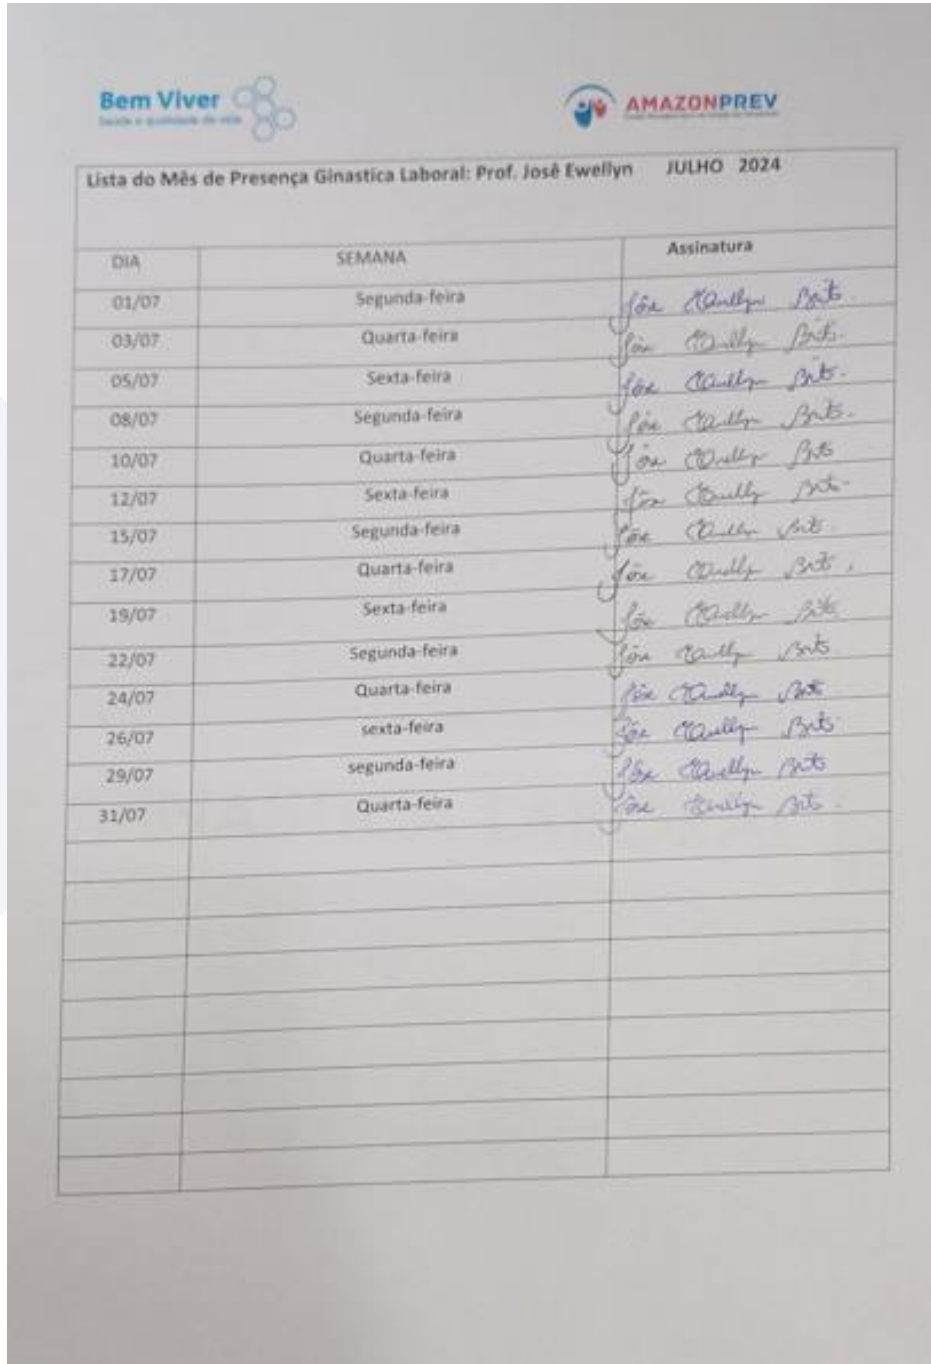 Bem Viver
Saúde e qualidade de vida
AMAZONPREV
Lista do Mês de Presença Ginastica Laboral: Prof. José Ewellyn JULHO 2024
DIA SEMANA Assinatura
01/07 Segunda-feira José Ewellyn Brito.
03/07 Quarta-feira José Ewellyn Brito.
05/07 Sexta-feira José Ewellyn Brito.
08/07 Segunda-feira José Ewellyn Brito.
10/07 Quarta-feira José Ewellyn Brito
12/07 Sexta-feira José Ewellyn Brito
15/07 Segunda-feira José Ewellyn Brito.
17/07 Quarta-feira José Ewellyn Brito.
19/07 Sexta-feira José Ewellyn Brito
22/07 Segunda-feira José Ewellyn Brito
24/07 Quarta-feira José Ewellyn Brito
26/07 sexta-feira José Ewellyn Brito
29/07 segunda-feira José Ewellyn Brito
31/07 Quarta-feira José Ewellyn Brito.